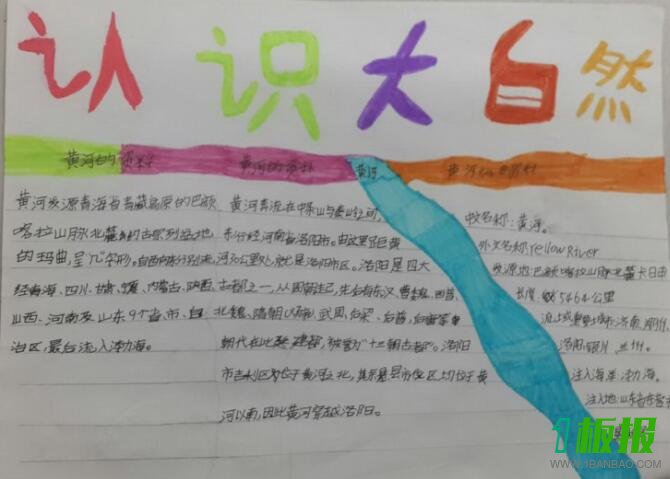 认识大自然
黄河的资料
黄河的资料
黄河
黄河的资料
黄河发源青海省青藏高原的巴颜
喀拉山脉北麓的古宗列盆地
的玛曲,呈"几"字形。自西向东分别流
经青海、四川、甘肃、宁夏、内蒙古、陕西、
山西、河南及山东9个省、市、自
治区,最后流入渤海。
黄河奔流在中条山与
东行经河南省洛阳市。由这里距黄
河30公里处就是洛阳市区。洛阳是四大
古都之一,从周朝起,先后有东汉、曹魏、西晋、
北魏、隋朝、武周、后梁、后唐、后晋等
朝代在此建都,被誉为"十三朝古都"。洛阳
市吉利区位于黄河之北,其余县市区均位于黄
河以南,因此黄河穿越洛阳。
中文名称:黄河。
外文名称Yellow River
发源地:巴颜喀拉山脉北麓卡日曲
长度:5464公里
流域重要城市济南,郑州,
洛阳,银川,兰州。
注入海洋:渤海。
注入地:山东省东营市
1板报
WWW.1BANBAO.COM